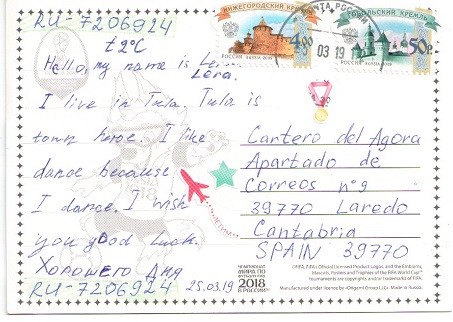 RU-7206924
t2°C
Hallo, my name is Lera.
Lera.
I live in Tula. Tula is
town heroe. I like
dance because
I dance. I wish
you good luck.
Хорошего Дня
RU-7206924
25.03.19
НИЖЕГОРОДСКИЙ КРЕМЛЬ
4.00
РОССИЯ RUSSIA 2009
ТОБОЛЬСКИЙ КРЕМЛЬ
50
РОССИЯ RUSSIA 2009
ПОЧТА РОССИИ
03 19
Cantero del Agora
Apartado de
Correos nº9
39770 Laredo
Cantabria
SPAIN 39770
ЧЕМПИОНАТ
МИРА ПО
ФУТБОЛУ FIFA
2018
В РОССИИ
©FIFA, FIFA's Official Licensed Product Logos, and the Emblems,
Mascots, Posters and Trophies of the FIFA World Cup™
tournaments are copyrights and/or trademarks of FIFA.
Manufactured under licence by «Origami Group» LLC. Made in Russia.